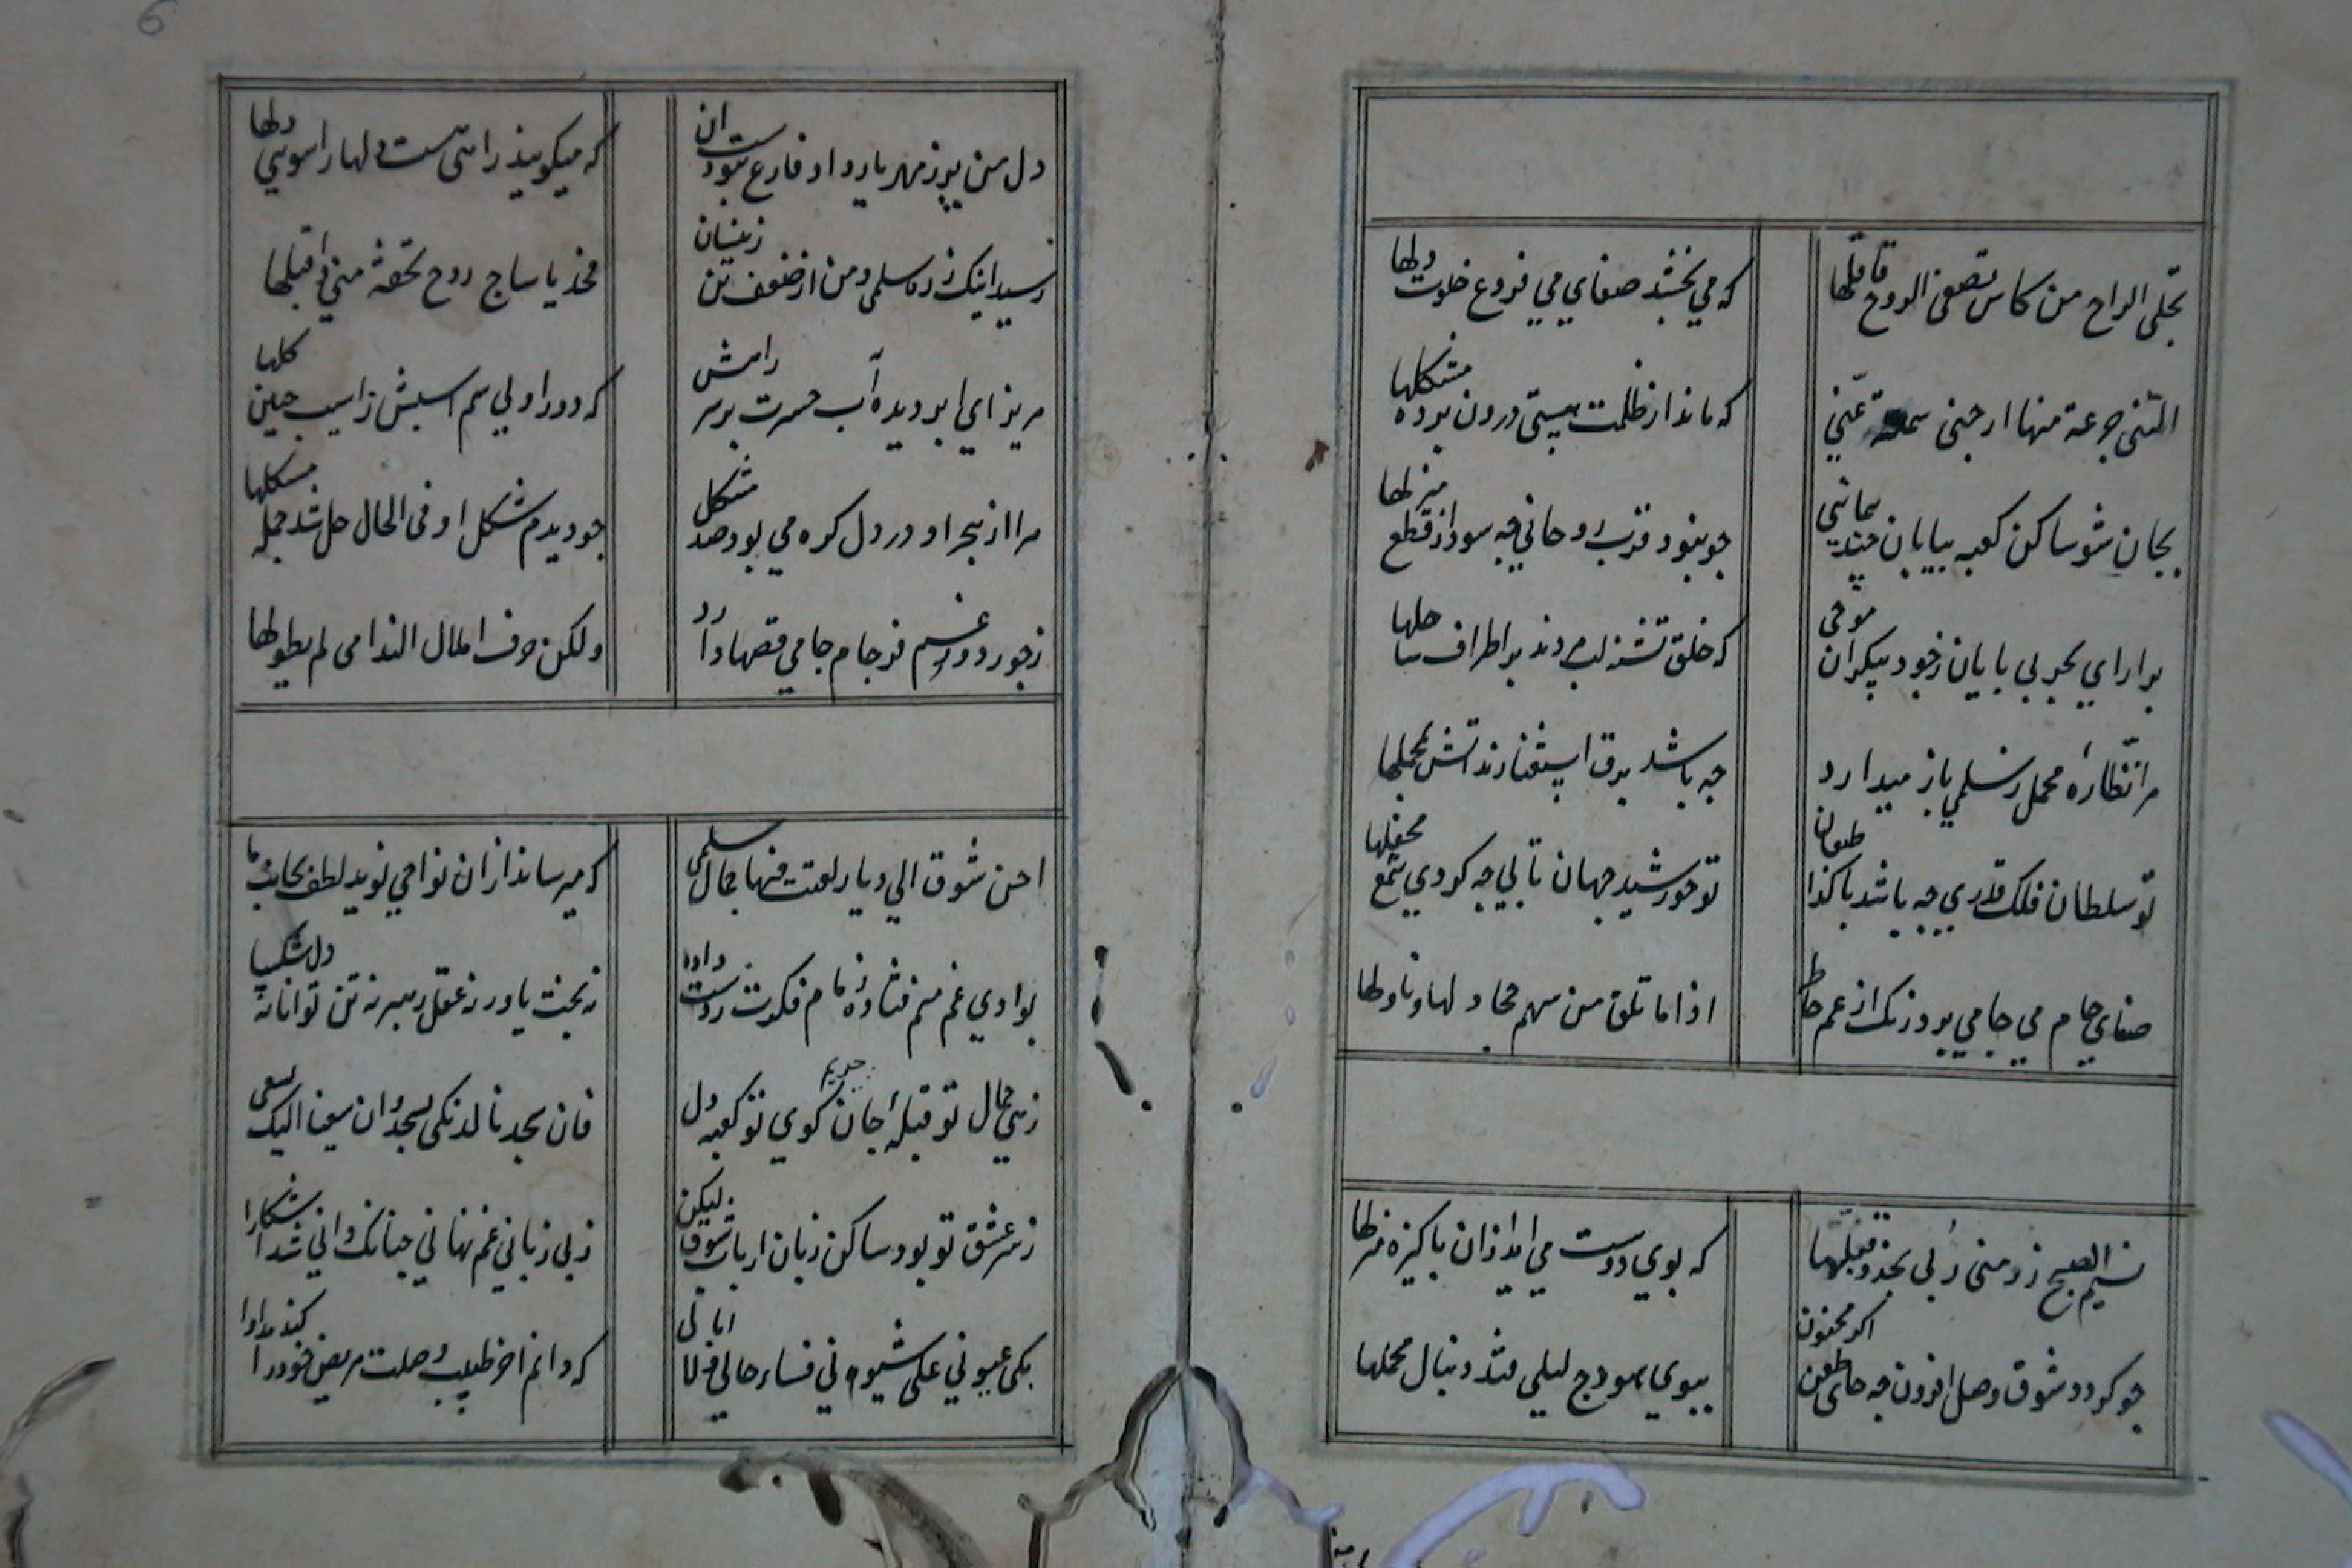 تجلی الراح من کاس تصفی الروح فاقبلها
که می بخشد صفای می فروغ خلوت دلها
انلنی جرعة منها ارحنی ساعة عنی
که ماند از ظلمت هستی درون پرده مشکلها
بجان شو ساکن کعبه بیابان چند پیمائی
چو نبود قرب روحانی چه سود از قطع منزلها
برار ای بحر بی پایان ز خود بیکران موجی
که خلق تشنه لب مردند بر اطراف ساحلها
مرا نظاره محمل ز سلمی باز میدارد
چه باشد برق استغنا زند اتش بمحملها
تو سلطان فلک قدری چه باشد با کدا طبعان
تو خورشید جهان تابی چه کردی شمع محفلها
صفای جام می جامی برد زنک از غم خاطر
اذا ما تلق من سهم فحاولها وناولها
نسیم الصبح زر منی ربی نجد و قبلها
که بوی دوست می اید ازان پاکیزه منزلها
چو کردد شوق وصل افزون چه جای طعن اکر مجنون
ببوی هودج لیلی فتد دنبال محملها
دل من پر ز مهر یار و او فارغ نبودست ان
که میکویند راهی هست دلها را سوی دلها
رسید اینک ز ره سلمی و من از ضعف تن زینسان
فخذ یا صاح روحی تحفة منی و اقبلها
مریز ای ابر دیده آب حسرت بر سر راهش
که دور اولی سم اسبش ز اسیب چنین کلها
مرا از هجر او در دل کره می بود صد مشکل
چو دیدم شکل او فی الحال حل شد جمله مشکلها
ز جور دور غم فرجام جامی قصها دارد
ولکن خوف املال الندامی لم یطولها
احن شوقا الی دیار لقیت فیها جمال سلمی
که میرساند ازان نواحی نوید لطفی بجانب ما
بوادی غم منم فتاده زمام فکرت ز دست داده
نه بخت یاور نه عقل رهبر نه تن توانا نه دل شکیبا
زهی جمال تو قبلهٔ جان حریم کوی تو کعبه دل
فان سجدنا الیک نسجد وان سعینا الیک نسعی
ز سر عشق تو بود ساکن زبان ارباب شوق لیکن
ز بی زبانی غم نهانی چنانک دانی شد اشکارا
بکت عیونی علی شیونی فساء حالی فلا ابالی
که دانم اخر طبیب وصلت مریض خود را کند مداوا